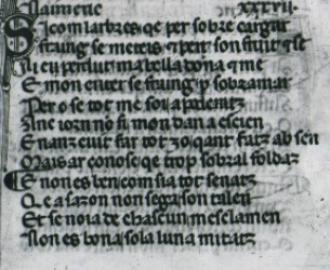 Naimeric xxxvii.
Si com larbres qe per sobre cargar
fraing se meteis e pert son fruit e se
Ai eu perdut ma bella dona e me
E mon enter se fraing p sobramar
Pero se tot me soi
Anc iorn no fi mon dan a escien
Enanz cuit far tot zo qant fatz ab sen
Mais ar conosc qe trop sobral foldaz
E non es ben com sia tot senatz
Qe a sazon non sega son talen
Et se noia de chascun mesclamen
Non es bona sola luna mitatz